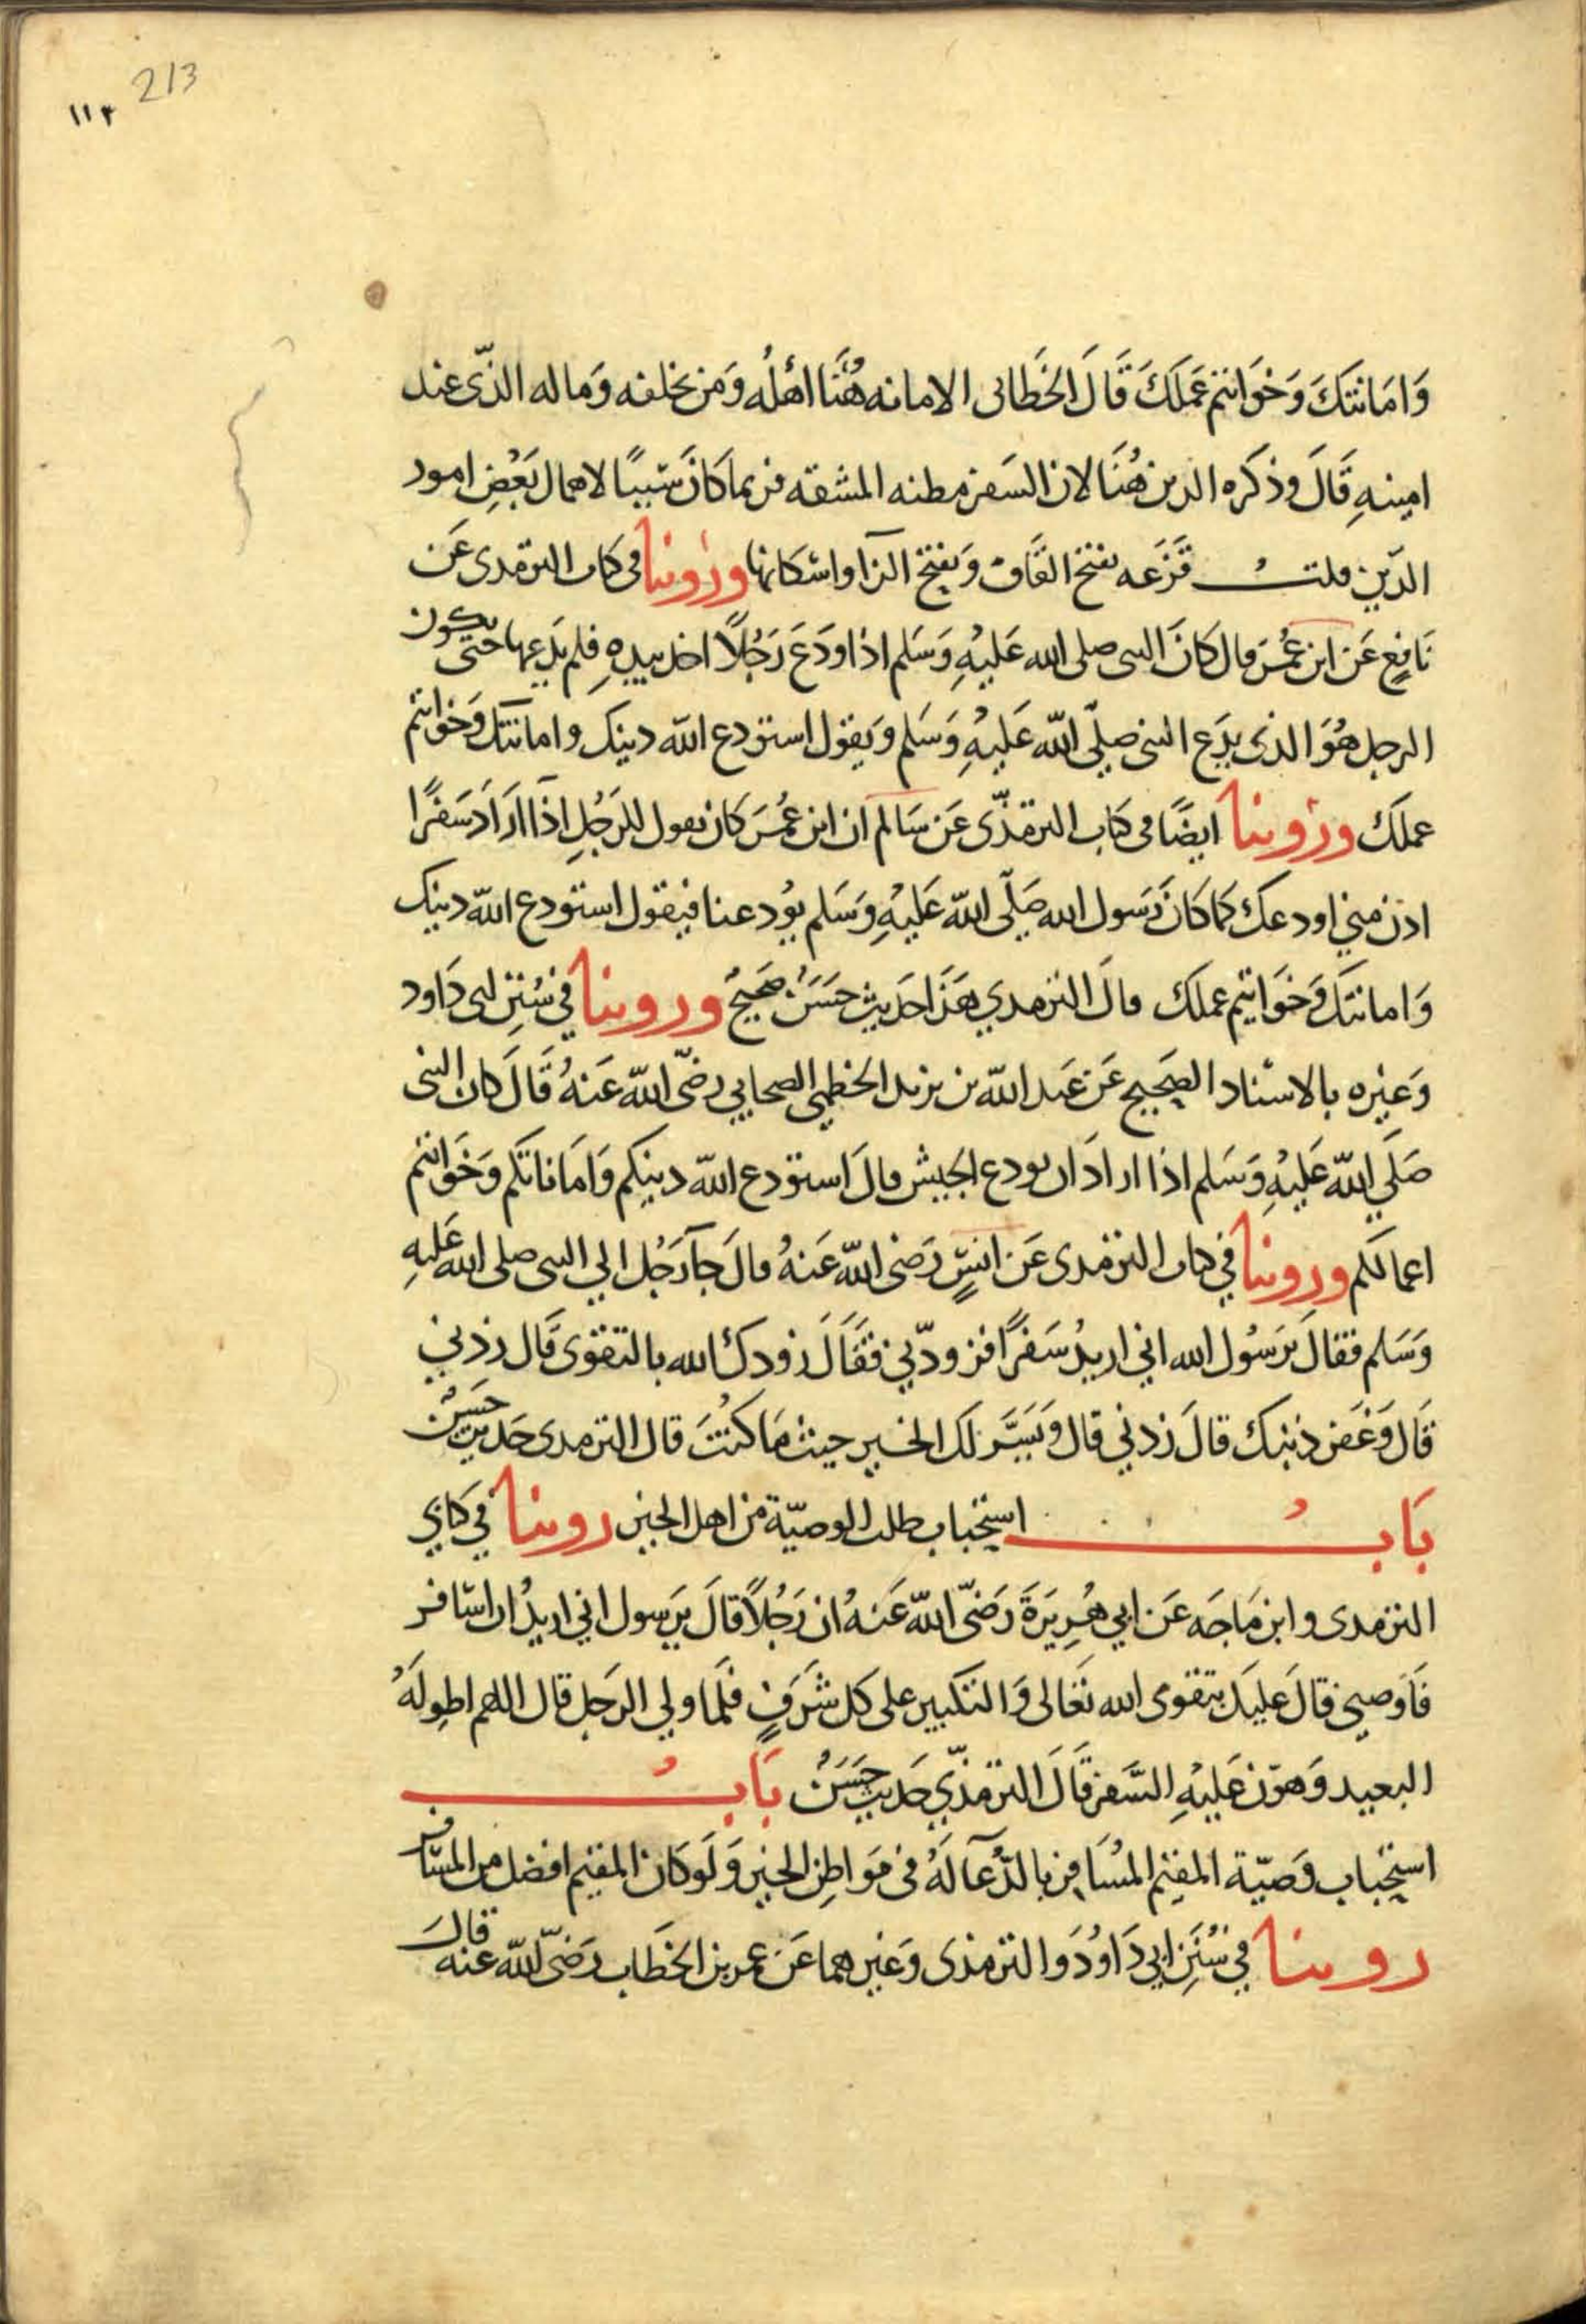 213
١١٣
وَامَانتَكَ وَخوَاتيم عَملَكَ قَالَ الخَطابى الامانه هُنَا اهْلُه وَمن يخلفه وَماله الذّى عند
امينهِ قَالَ وذكَره الدين هُنَا لان السَفر مظنه المشقه فربما كَانَ سَببًا لاهمال بَعْضِ امور
الدّين قلتُ قَزَعَه بفتح القَاف وَبفتح الزآ واسْكانها ورُوينا فى كتاب الترمذى عَن
نَافِعٍ عَن ابن عُمَرَ قال كَانَ النبى صلى الله عَليْهِ وَسَلم اذا ودَعَ رَجُلًا اخذ بيدهِ فلم يَدَعها حتى يكون
الرجل هُوَ الذى يدَع النبى صلّى الله عَليْهِ وَسَلم وَيقول استودع الله دينك وامانتك وَخواتيم
عملكَ ورُوينا ايضًا فى كتاب الترمذّى عَن سَالم ان ابن عُمَرَ كان يقول للرَجُلِ اذَا ارَادَ سَفرًا
ادن منى اودعك كما كَانَ رَسول الله صَلّى الله عَليْهِ وَسَلم يوُدعنا فيقول استودع الله دينك
وَامانتكَ وَخوَاتيم عملكَ قالَ الترمذي هَذَا حَديث حَسَنٌ صَحيحٌ وروينا في سُننِ ابى دَاود
وَغيره بالاسْناد الصَحيح عَن عَبد الله بن يزيد الخطمي الصحابي رضّى الله عَنهُ قَالَ كان النبى
صَلَى الله عَليْهِ وَسَلم اذا ارادَ ان يودع الجيش قالَ استودع الله دينكم وَامَاناتكم وَخَوَاتيم
اعمالكم وروينا في كتاب الترمذى عَن انسٍ رَضى الله عَنهُ قالَ جآ رَجُل الي النبى صلى الله عَليهِ
وَسَلم فقالَ يَرسُول الله اني اريدُ سَفرًا فزودّني فقَالَ زودك الله بالتقوى قَال زدني
قَال وَغَفر ذنبك قالَ زدني قال وَيَسَّر لك الخير حيث مَا كنتَ قال الترمذى حَديث حَسَنٌ
بَابُ استِحباب طلب الوصيّة من اهل الخير روينا في كتابي
الترمذى وابن مَاجَه عَن ابي هُريَرَةَ رَضّى الله عَنهُ ان رَجُلًا قالَ يَرسول اني اريدُ ان اسَافر
فَاوصنى قالَ عَليكَ بتقوى الله تَعَالى وَالتكبير على كل شَرَفٍ فلمَا ولي الرَجل قال اللهم اطوِلَهُ
البعيد وَهوّن عَليْهِ السَّفر قَالَ الترمذّي حَديث حَسَنٌ بَابُ
استِحباب وَصيّة المقيم المسُافر بالدُّعآ لَهُ فى مَوَاطِن الخير وَلَو كَان المقيم افضل من المسَافر
روينا في سُنَنِ ابي دَاوُدَ والترمذى وَغيرهما عَن عمر بن الخطَاب رَضّى الله عنه قالَ